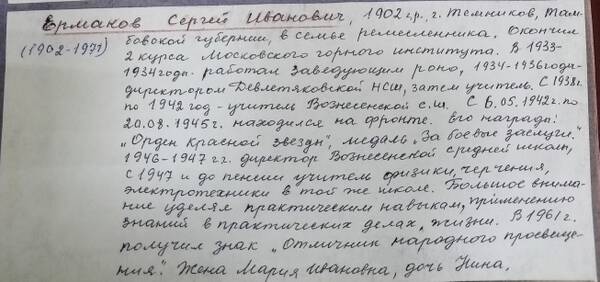 Ермаков Сергей Иванович, 1902 г.р., г. Темников, Там-
(1902-1971) бовской губернии, в семье ремесленника. Окончил
2 курса Московского горного института. В 1933-
1934 годы работал заведующим роно, 1934-1936 годы -
директором Девлетяковской НСШ, затем учитель. С 1938 г.
по 1942 год - учитель Вознесенской с.ш. С 6.05.1942 г. по
20.08.1945 г. находился на фронте. Его награды:
"Орден Красной звезды", медаль "За боевые заслуги".
1946-1947 гг. директор Вознесенской средней школы,
с 1947 и до пенсии учитель физики, черчения,
электротехники в той же школе. Большое внима-
ние уделял практическим навыкам, применению
знаний в практических делах, жизни. В 1961 г.
получил знак "Отличник народного просвеще-
ния". Жена Мария Ивановна, дочь Нина.